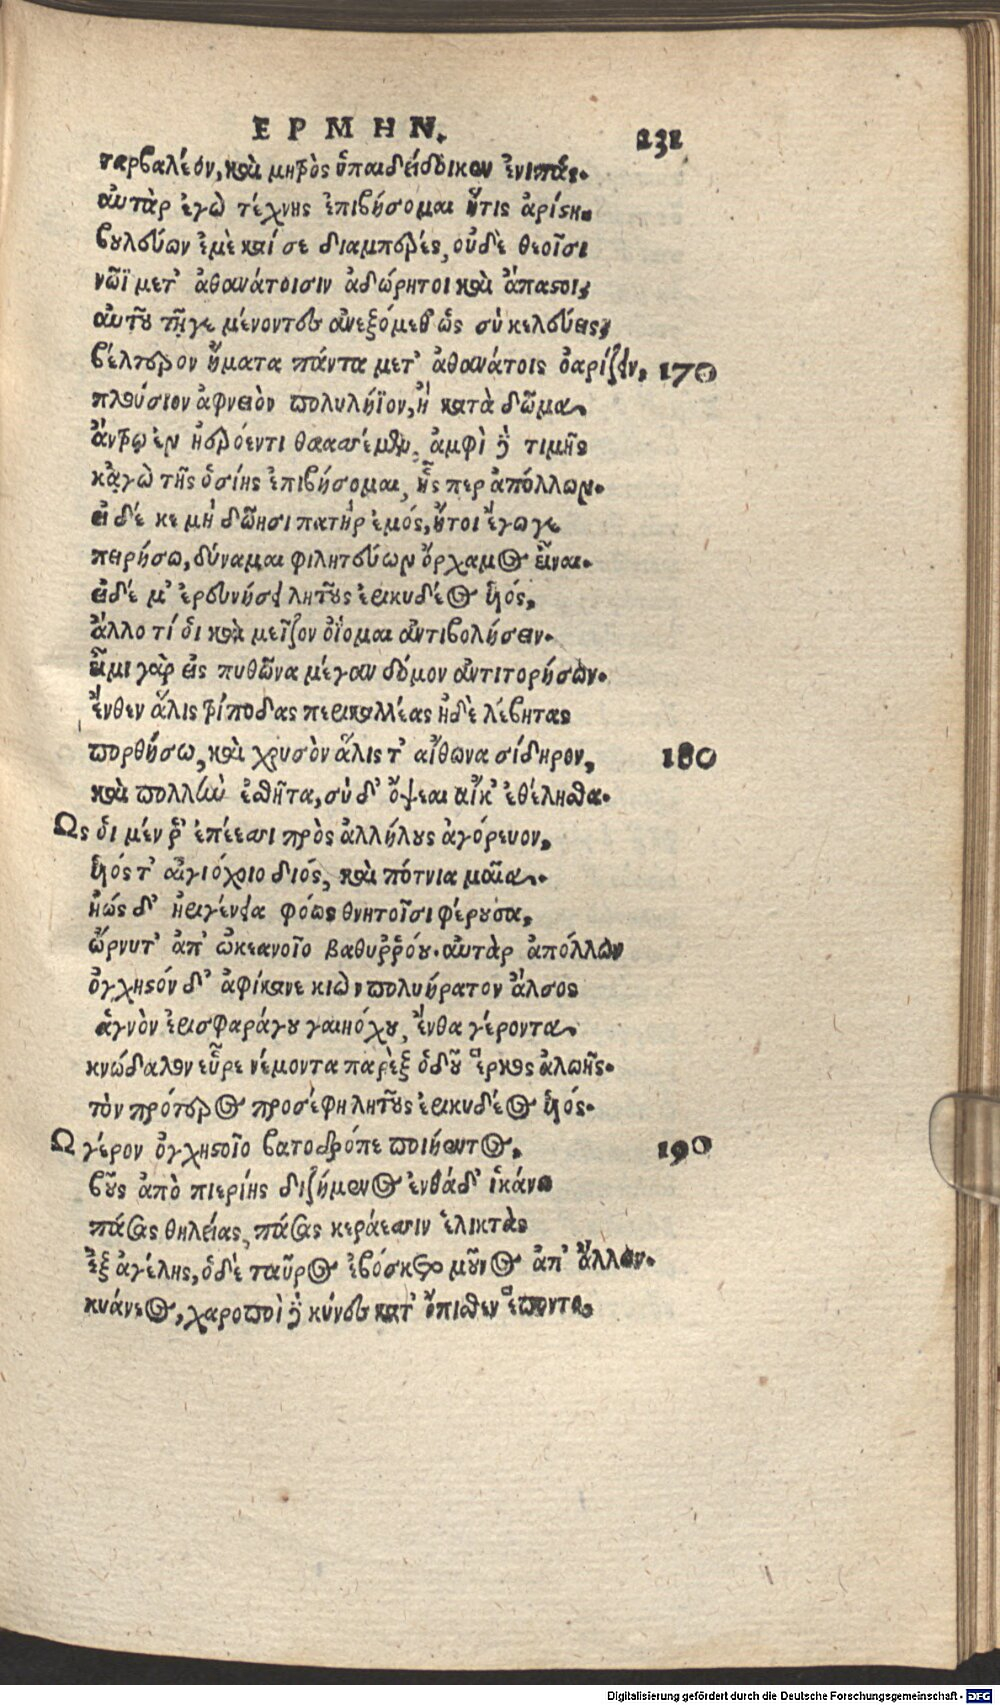 ΕΡΜΗΝ. 231
ταρβαλέον, καὶ μητρὸς ὑπαιδείδοικεν ἐνιπάς.
αὐτὰρ ἐγὼ τέχνης ἐπιβήσομαι ἥτις ἀρίστη.
βουλεύων ἐμὲ καί σε διαμπερές, οὐδὲ θεοῖσι
νῶϊ μετ' ἀθανάτοισιν ἀδώρητοι καὶ ἄπαστοι,
αὐτοῦ τῇγε μένοντες ἀνεξόμεθ ὡς σὺ κελεύεις,
βέλτερον ἤματα πάντα μετ' ἀθανάτοις ὀαρίζειν, 170
πλούσιον ἀφνειὸν πολυλήϊον, ἢ κατὰ δῶμα
ἄντρῳ ἐν ἠερόεντι θαασσέμεν, ἀμφὶ δὲ τιμῆς
κᾀγὼ τῆς ὁσίης ἐπιβήσομαι, ἧς περ ἀπόλλων.
εἰ δέ κε μὴ δώῃσι πατὴρ ἐμός, ἤτοι ἔγωγε
πειρήσω, δύναμαι φιλητεύων ὄρχαμος εἶναι.
εἰδέ μ' ἐρευνήσει λητοῦς ἐρικυδέος ὑιός,
ἄλλο τί ὁι καὶ μεῖζον ὀΐομαι ἀντιβολήσειν.
εἶμι γὰρ εἰς πυθῶνα μέγαν δόμον ἀντιτορήσων.
ἔνθεν ἅλις τρίποδας περικαλλέας ἠδὲ λέβητας
πορθήσω, καὶ χρυσὸν ἅλις τ' αἴθωνα σίδηρον, 180
καὶ πολλὴν ἐσθῆτα, σὺ δ' ὄψεαι αἴκ' ἐθέλησθα.
Ως ὁι μέν ῥ' ἐπέεσσι πρὸς ἀλλήλους ἀγόρευον,
ὑιός τ' αἰγιόχοιο διός, καὶ πότνια μαῖα.
ἠώς δ' ἠριγένεια φόως θνητοῖσι φέρουσα,
ὤρνυτ' ἀπ' ὠκεανοῖο βαθυῤῥόου. αὐτὰρ ἀπόλλων
ὀγχηστόν δ' ἀφίκανε κιὼν πολυήρατον ἄλσος
ἁγνὸν ἐρισφαράγου γαιηόχου, ἔνθα γέροντα
κνώδαλον εὗρε νέμοντα παρὲξ ὁδοῦ ἕρκος ἀλωῆς.
τὸν πρότερος προσέφη λητοῦς ἐρικυδέος ὑιός.
Ω γέρον ὀγχηστοῖο βατοδρόπε ποιήεντος, 190
βοῦς ἀπὸ πιερίης διζήμενος ἐνθάδ' ἱκάνω
πάσας θηλείας, πάσας κεράεσσιν ἑλικτὰς
ἐξ ἀγέλης, ὁδὲ ταῦρος ἐβόσκετο μοῦνος ἀπ' ἄλλων.
κυάνεος, χαροποὶ δὲ κύνες κατ' ὄπισθεν ἕποντο,
Digitalisierung gefördert durch die Deutsche Forschungsgemeinschaft - DFG